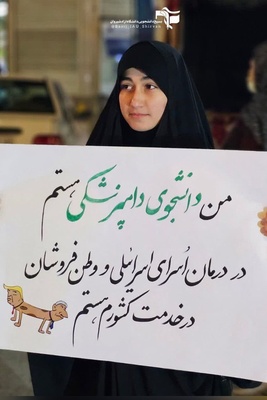 من دانشجوی دامپزشکی هستم
در درمان اُسرای اسرائیلی و وطن فروشان
در خدمت کشورم هستم